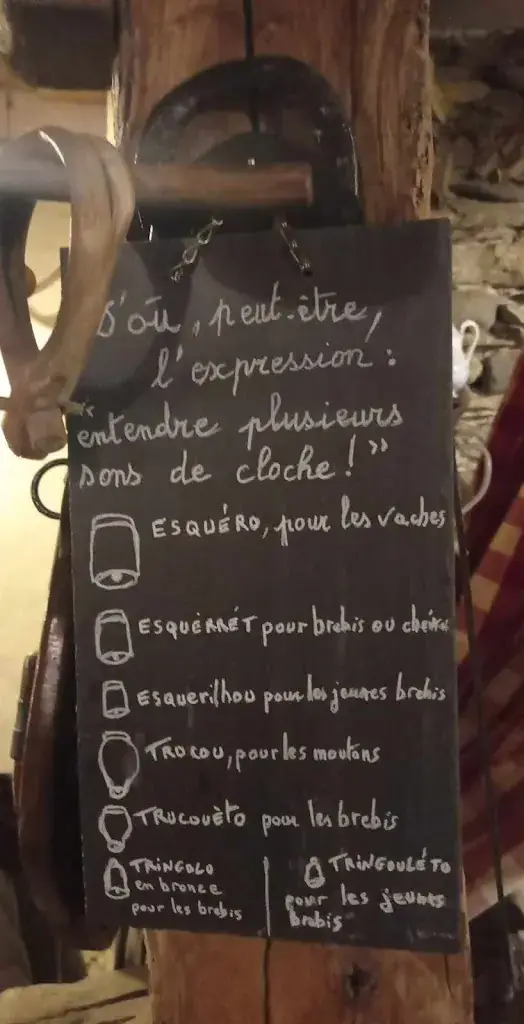 D'où, peut-être,
l'expression :
"entendre plusieurs
sons de cloche !"
ESQUÉRO, pour les vaches
ESQUÈRRÉT pour brebis ou chèvre
Esquerilhou pour les jeunes brebis
TROCOU, pour les moutons
TRUCOUÈTO pour les brebis
TRINGOLO
en bronze
pour les brebis
TRINGOULÉTO
pour les jeunes
brebis